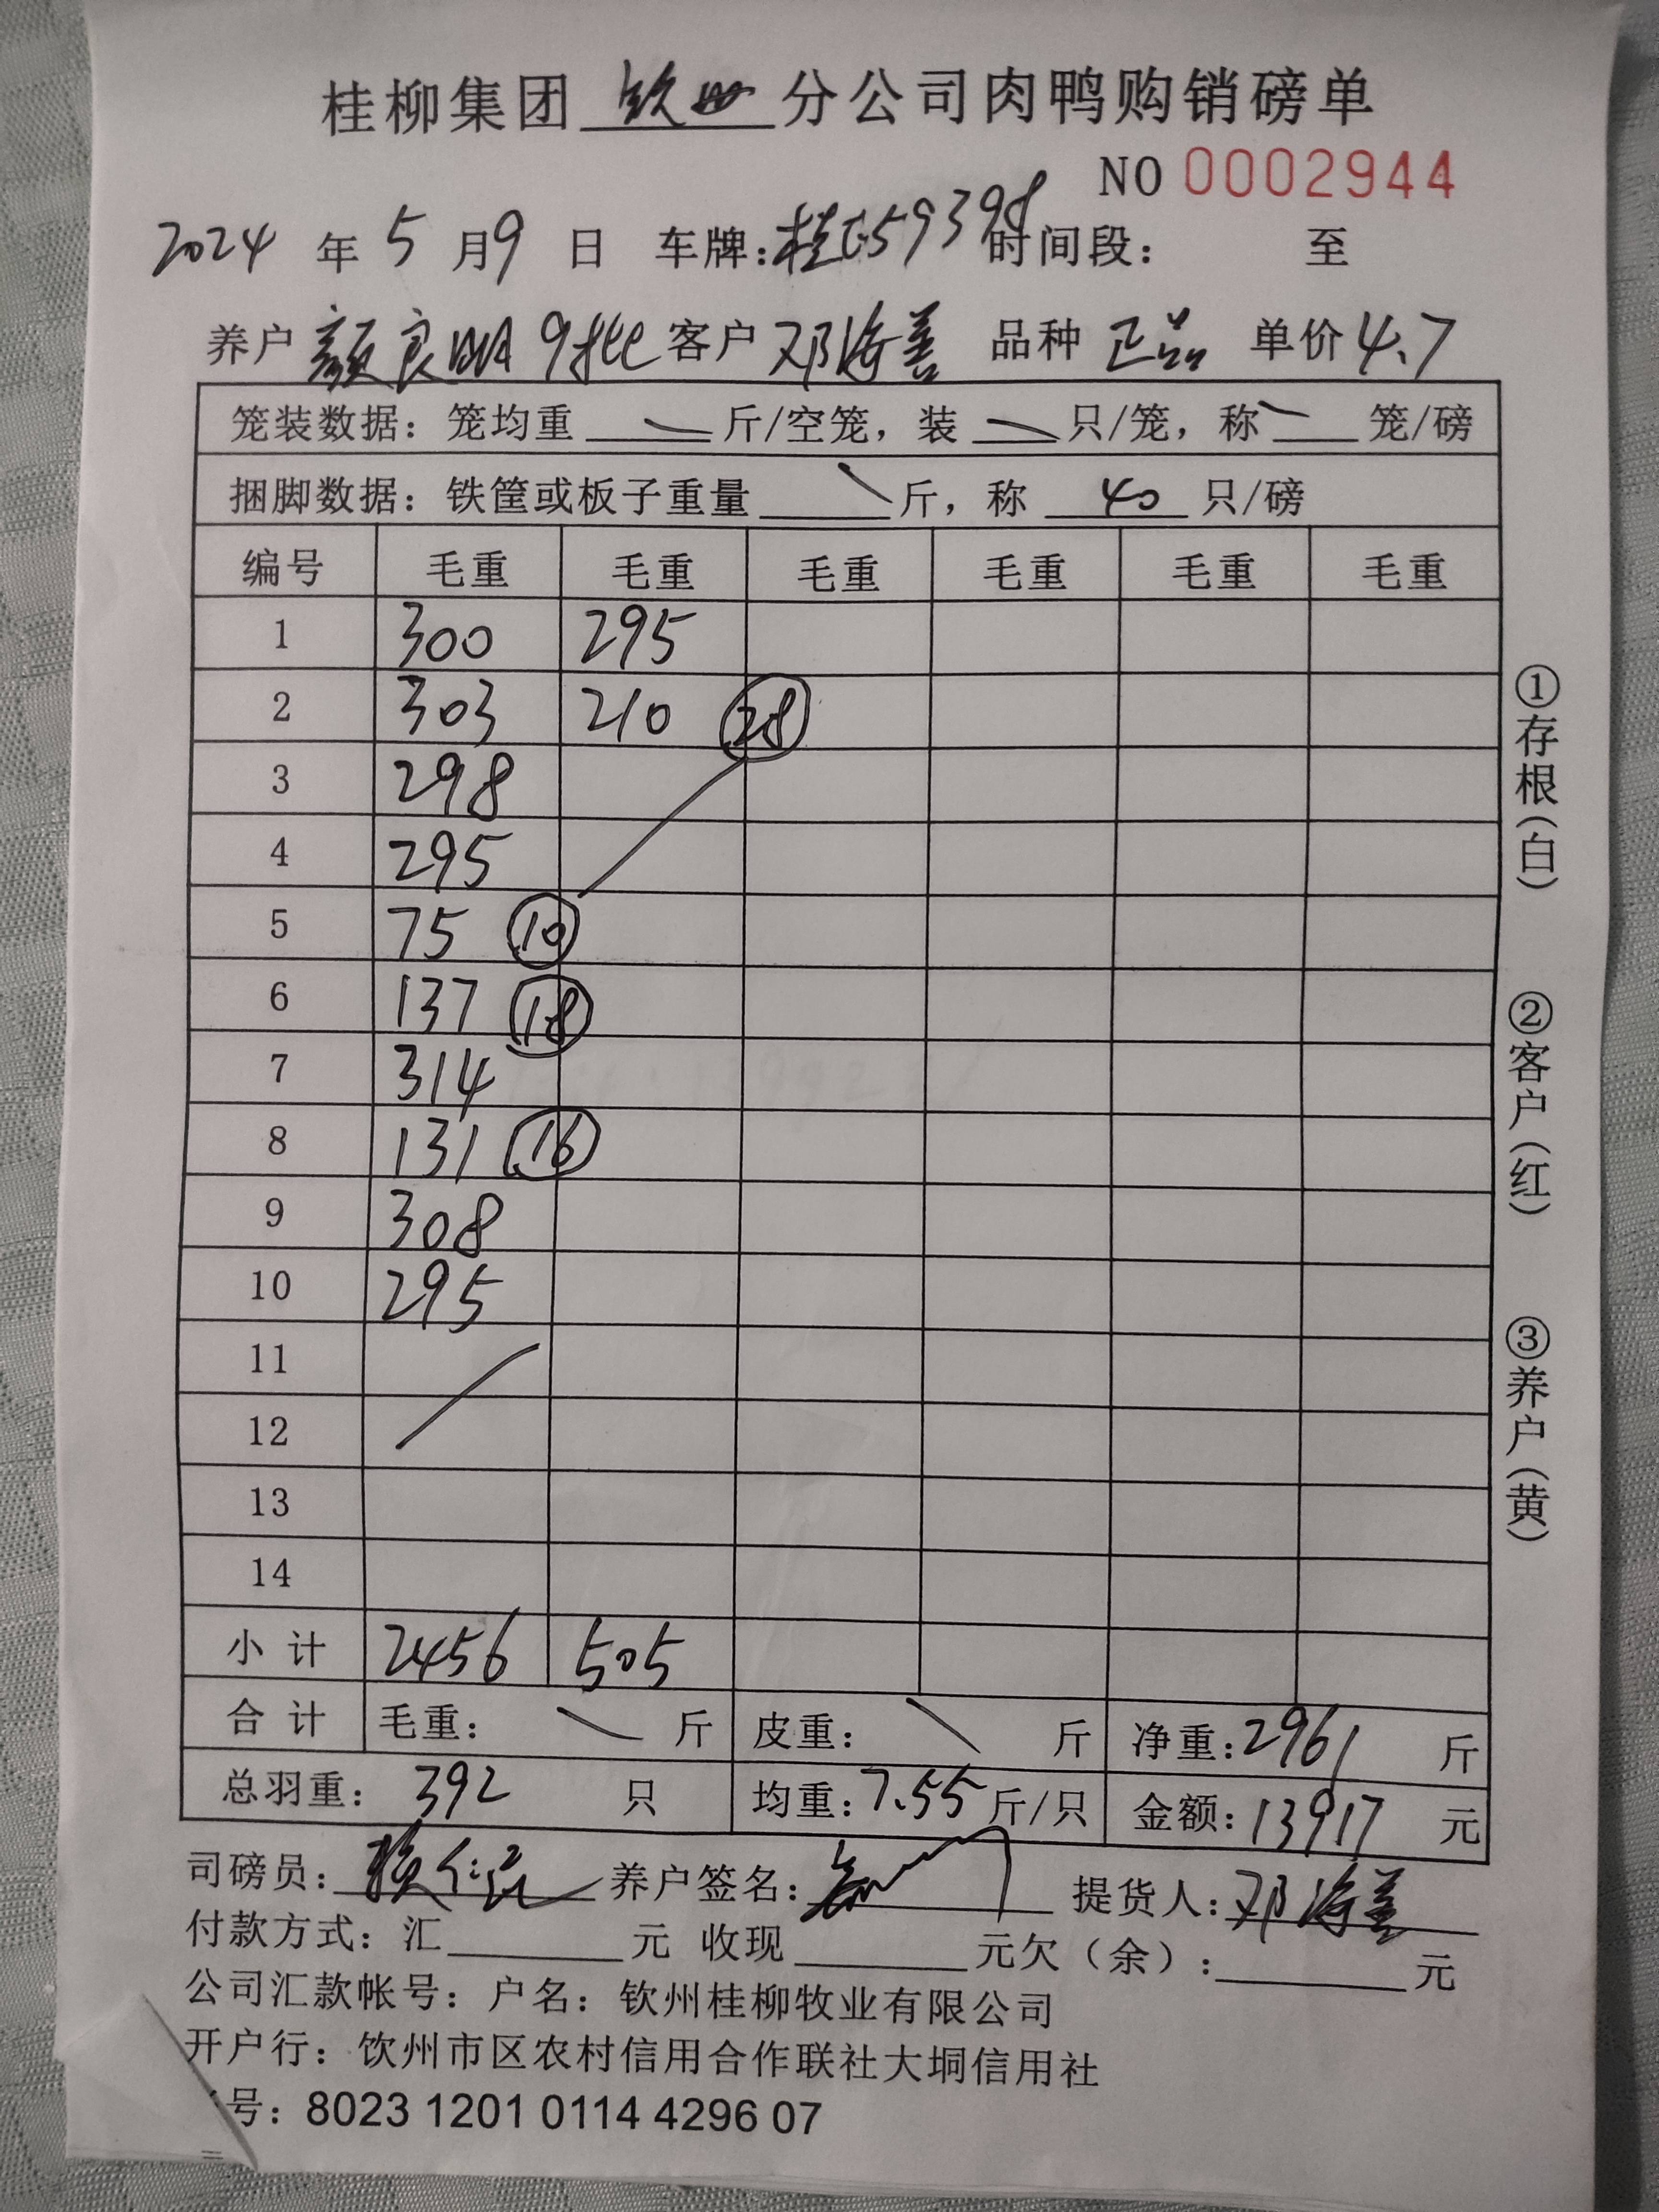 桂柳集团 钦州 分公司肉鸭购销磅单
NO 0002944
2024 年 5 月 9 日 车牌:桂E59398 时间段: 至
养户 颜良明 9批 客户 邓海善 品种 正品 单价 4.7
笼装数据: 笼均重 斤/空笼, 装 只/笼, 称 笼/磅
捆脚数据: 铁筐或板子重量 斤, 称 40 只/磅
编号 毛重 毛重 毛重 毛重 毛重 毛重
1 300 295
2 303 210 28
3 298
4 295
5 75 10
6 137 18
7 314
8 131 16
9 308
10 295
11
12
13
14
小计 2456 505
合计 毛重: 斤 皮重: 斤 净重:2961 斤
总羽重: 392 只 均重:7.55 斤/只 金额:13917 元
司磅员: 养户签名: 提货人:邓海善
付款方式: 汇 元 收现 元欠(余): 元
公司汇款帐号: 户名: 钦州桂柳牧业有限公司
开户行: 饮州市区农村信用合作联社大垌信用社
号: 8023 1201 0114 4296 07
①存根(白)
②客户(红)
③养户(黄)